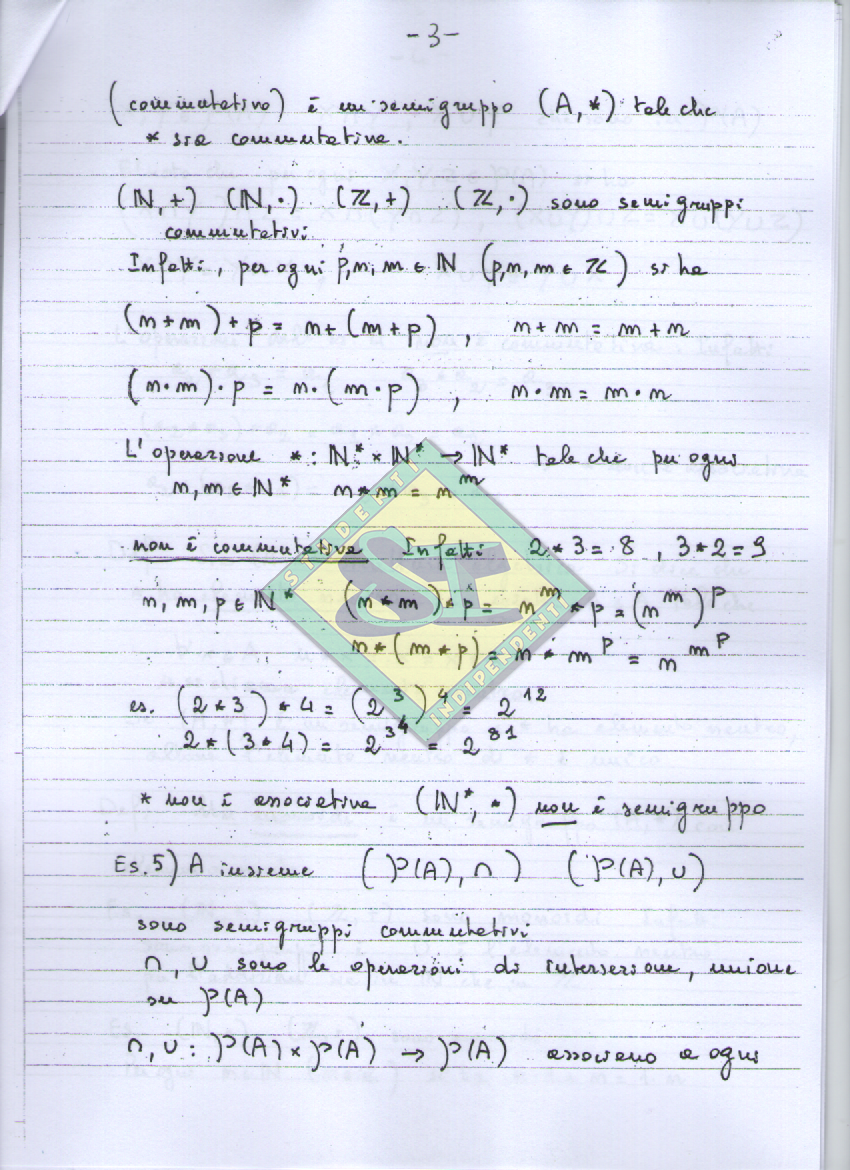 -3-
(commutativo) è un semigruppo (A,*) tale che
* sia commutativa.
(ℕ,+) (ℕ,·) (ℤ,+) (ℤ,·) sono semigruppi
commutativi
Infatti, per ogni p,n,m ∈ ℕ (p,n,m ∈ ℤ) si ha
(n+m)+p = n+(m+p) , n+m = m+n
(n·m)·p = n·(m·p) , n·m = m·n
L'operazione * : ℕ* × ℕ* → ℕ* tale che per ogni
n,m ∈ ℕ* n*m = n^m
non è commutativa Infatti 2*3=8 , 3*2=9
n, m, p ∈ ℕ* (n*m)*p = n^m * p = (n^m)^p
n*(m*p) = n*m^p = n^m^p
es. (2*3)*4 = (2^3)^4 = 2^12
2*(3*4) = 2^3^4 = 2^81
* non è associativa (ℕ*,*) non è semigruppo
Es.5) A insieme (P(A),∩) (P(A),∪)
sono semigruppi commutativi
∩,∪ sono le operazioni di intersezione, unione
su P(A)
∩,∪ : P(A)×P(A) → P(A) associano a ogni
STUDENTI
INDIPENDENTI